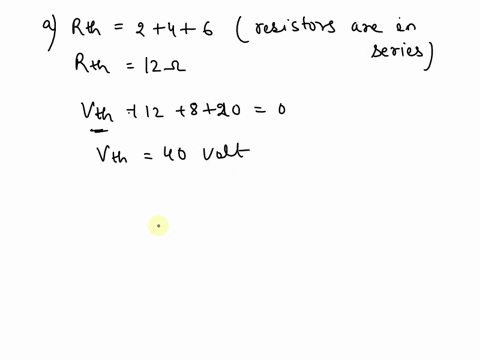 a) Rth = 2+4+6 (resistors are in series)
Rth = 12Ω
Vth +12 +8+20 = 0
Vth = 40 Volt